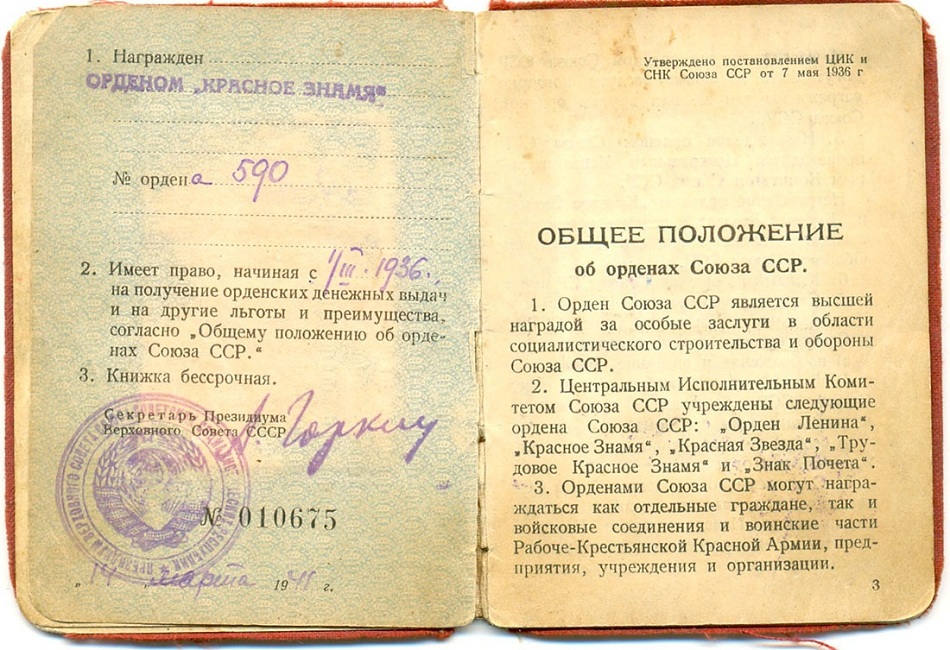 1. Награжден
ОРДЕНОМ „КРАСНОЕ ЗНАМЯ“
№ ордена 590
2. Имеет право, начиная с 1/III. 1936.
на получение орденских денежных выдач
и на другие льготы и преимущества,
согласно „Общему положению об орде-
нах Союза ССР.“
3. Книжка бессрочная.
Секретарь Президиума
Верховного Совета СССР
А. Горкин
№ 010675
„14 „ марта 1941 г.
Утверждено постановлением ЦИК и
СНК Союза ССР от 7 мая 1936 г
ОБЩЕЕ ПОЛОЖЕНИЕ
об орденах Союза ССР.
1. Орден Союза ССР является высшей
наградой за особые заслуги в области
социалистического строительства и обороны
Союза ССР.
2. Центральным Исполнительным Коми-
тетом Союза ССР учреждены следующие
ордена Союза ССР: „Орден Ленина“,
„Красное Знамя“, „Красная Звезда“, „Тру-
довое Красное Знамя“ и „Знак Почета“.
3. Орденами Союза ССР могут награ-
ждаться как отдельные граждане, так и
войсковые соединения и воинские части
Рабоче-Крестьянской Красной Армии, пред-
приятия, учреждения и организации.
3